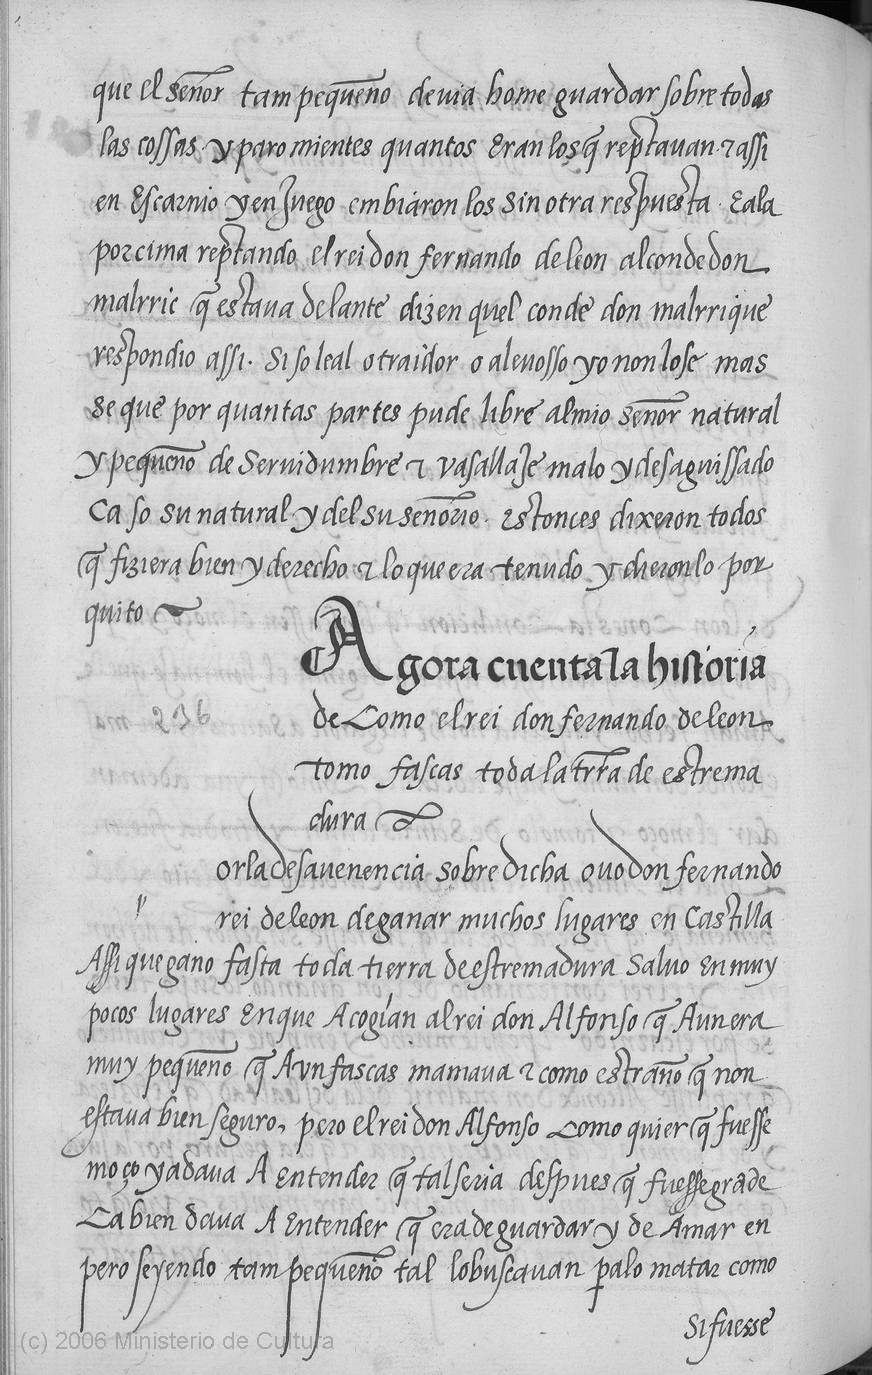 que el señor tam pequeño deuia home guardar sobre todas
las cossas. y paro mientes quantos eran los q̃ reptauan. τ assi
en escarnio y en Juego embiaron los sin otra respuesta. E ala
por cima reptando el rei don fernando de leon al conde don
malrric q̃ estaua delante dizen quel conde don malrrique
respondio assi. Si so leal o traidor o aleuosso yo non lo se mas
se que por quantas partes pude libre al mio señor natural
y pequeño de seruidumbre τ vasallaJe malo y desaguissado
Ca so su natural y del su señorio. Estonces dixeron todos
q̃ fiziera bien y derecho τ lo que era tenudo y dieronlo por
quito
Agora cuenta la historia
de Como el rei don fernando de leon
236
tomo fascas toda la trr̃a de estrema
dura
or la desauenencia sobre dicha ouo don fernando
rei de leon de ganar muchos lugares en Castilla
Assi que gano fasta toda tierra de estremadura Saluo en muy
pocos lugares En que Acogían al rei don Alfonso q̃ Aun era
muy pequeño q̃ Avn fascas mamaua τ como estraño q̃ non
estaua bien seguro, pero el rei don Alfonso Como quier q̃ fuesse
moço ya daua A Entender q̃ tal seria despues q̃ fuesse grãde
Ca bien daua A Entender q̃ era de guardar y de Amar en
pero seyendo tam pequeño tal lo buscauan pa lo matar como
Si fuesse
(c) 2006 Ministerio de Cultura